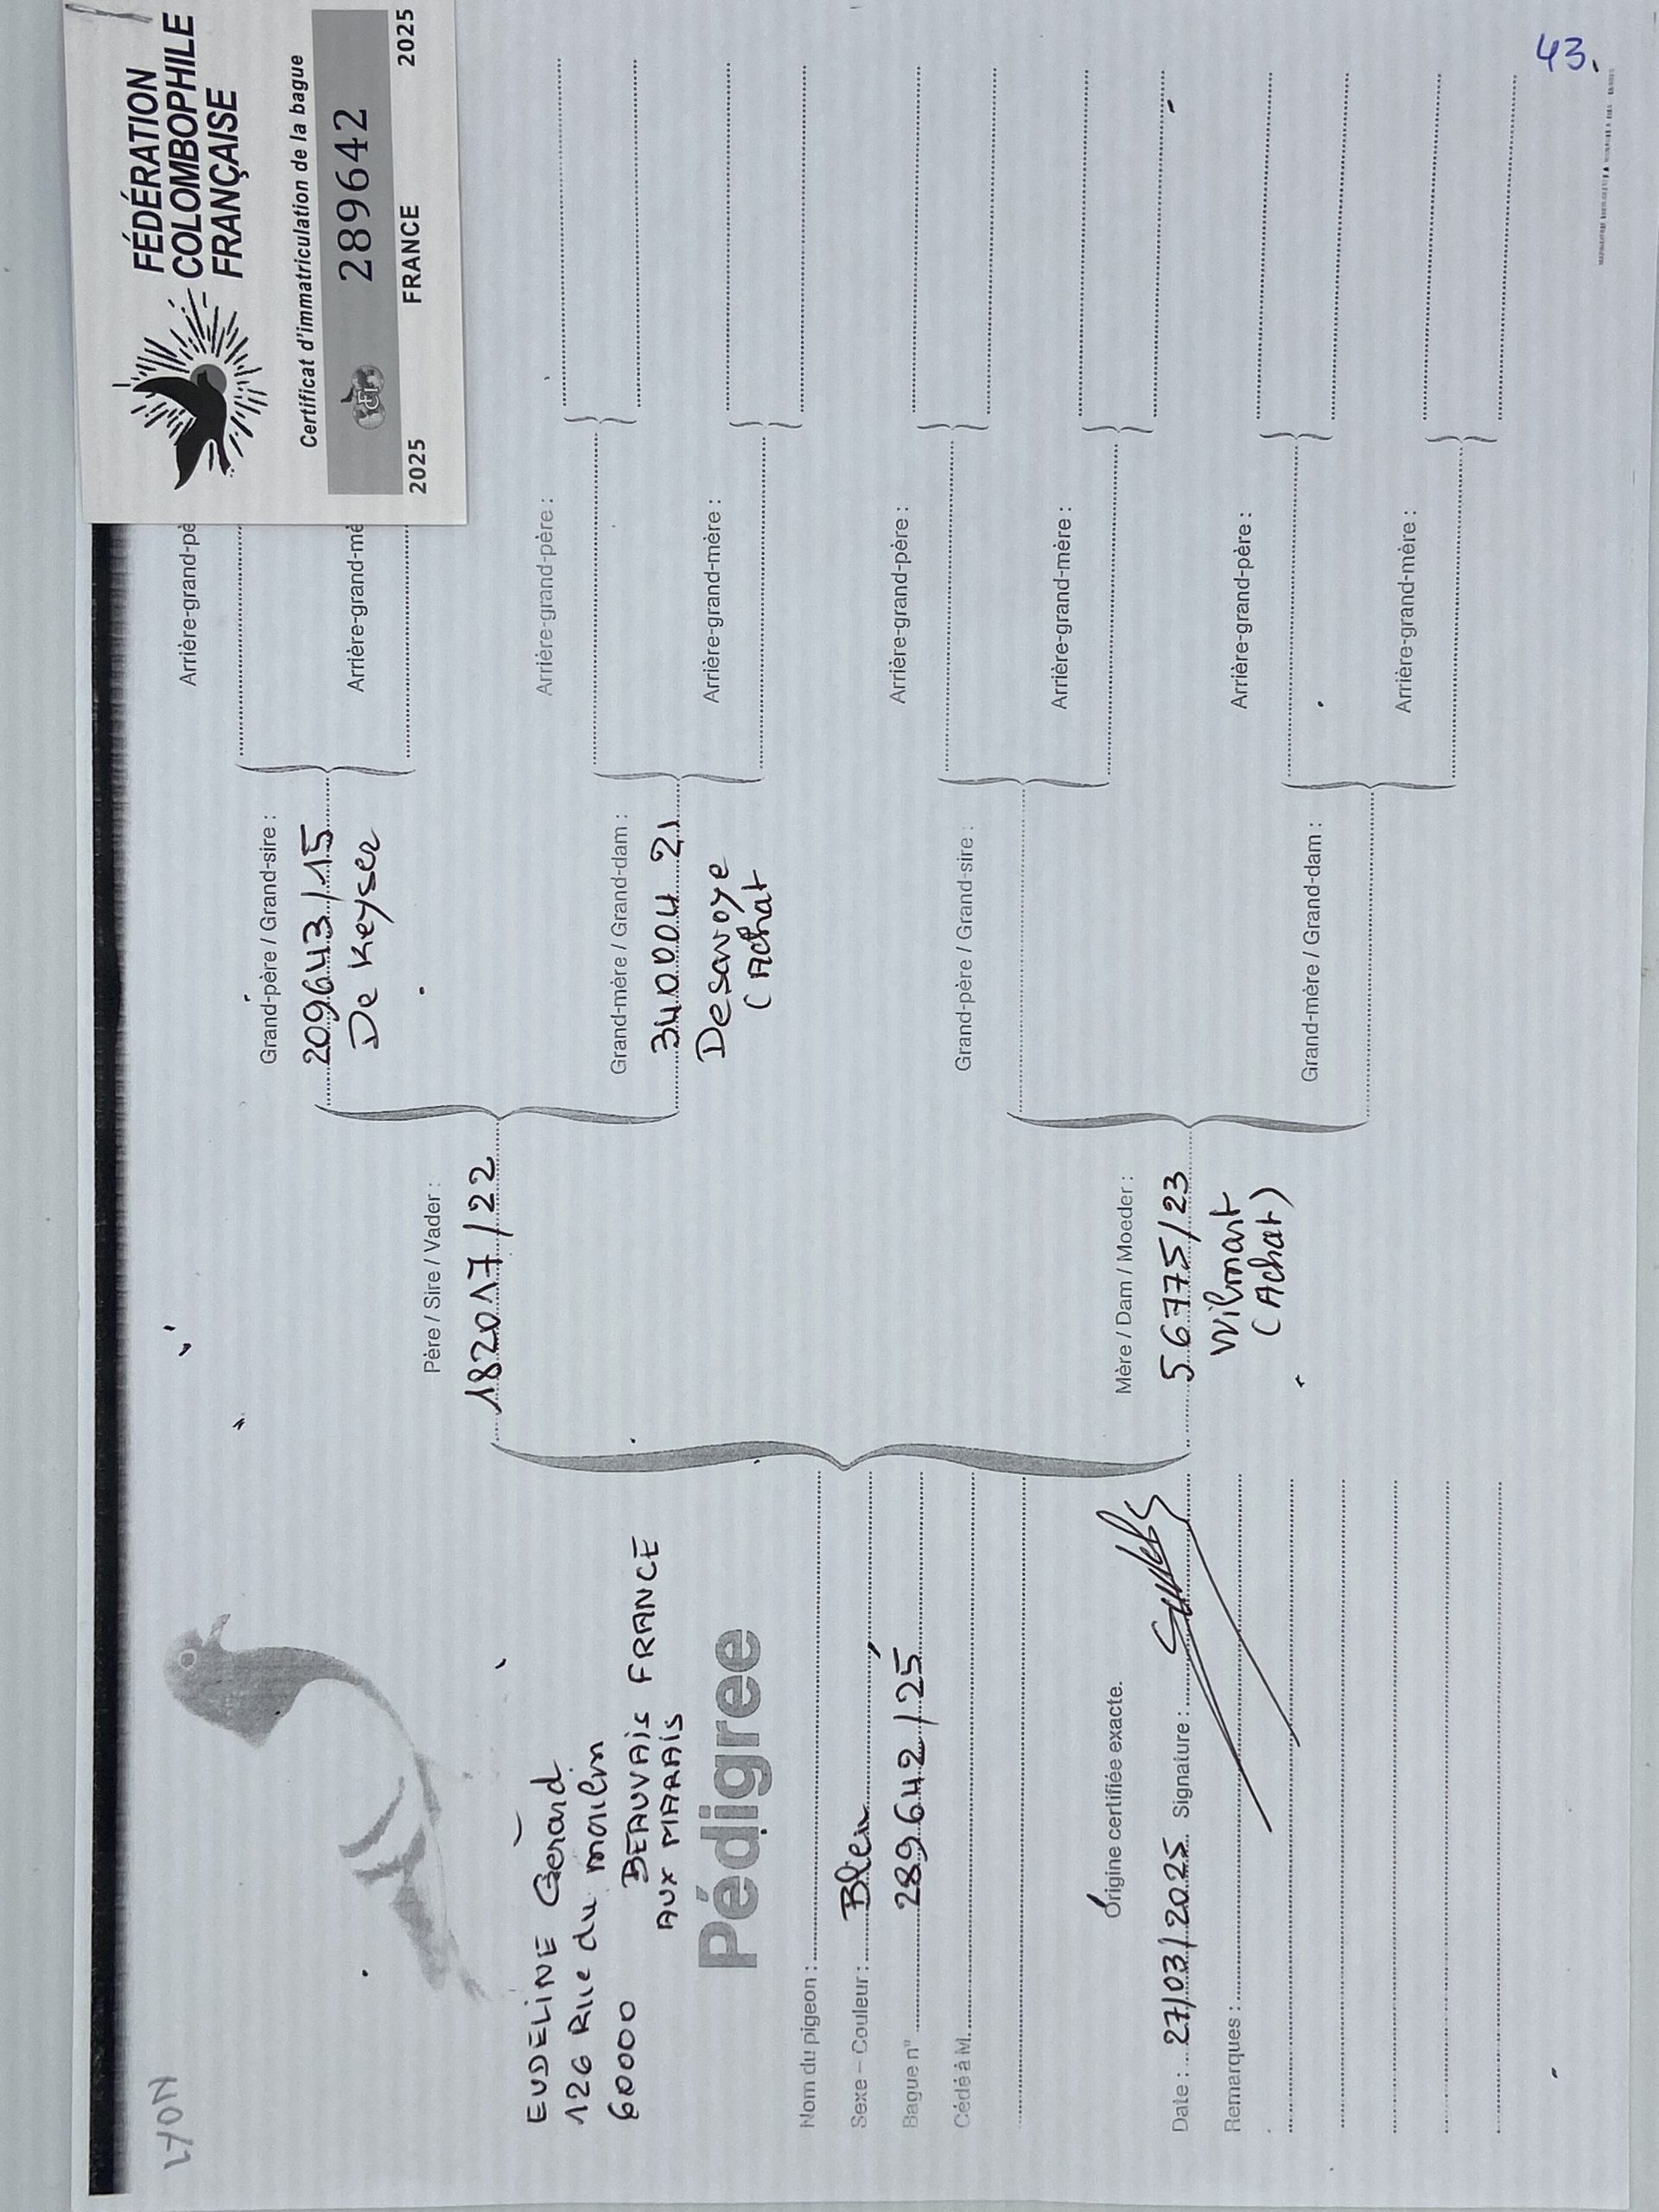 LYON
EUDELINE Gérard
126 Rue du moulin
60000 BEAUVAIS FRANCE
AUX MARAIS
Pédigree
Nom du pigeon :
Sexe – Couleur : Bleu
Bague n° 289642/25
Cédé à M.
Origine certifiée exacte.
Date : 27/03/2025 Signature :
Remarques :
Père / Sire / Vader :
182017/22
Mère / Dam / Moeder :
56775/23
Wilmart
(Achat)
Grand-père / Grand-sire :
209643/15
De Keyser
Grand-mère / Grand-dam :
340004 21
Desavoye
(Achat
Grand-père / Grand-sire :
Grand-mère / Grand-dam :
Arrière-grand-pè
Arrière-grand-mè
Arrière-grand-père :
Arrière-grand-mère :
Arrière-grand-père :
Arrière-grand-mère :
Arrière-grand-père :
Arrière-grand-mère :
FÉDÉRATION
COLOMBOPHILE
FRANÇAISE
Certificat d'immatriculation de la bague
FCI 289642
2025 FRANCE 2025
43.